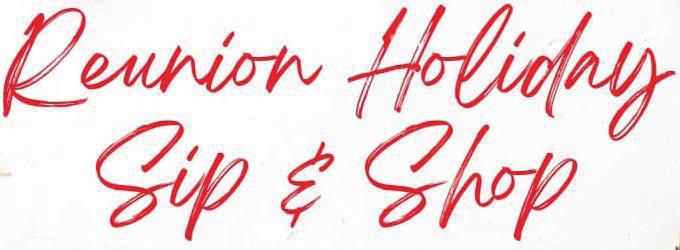 Reunion Holiday
Sip & Shop